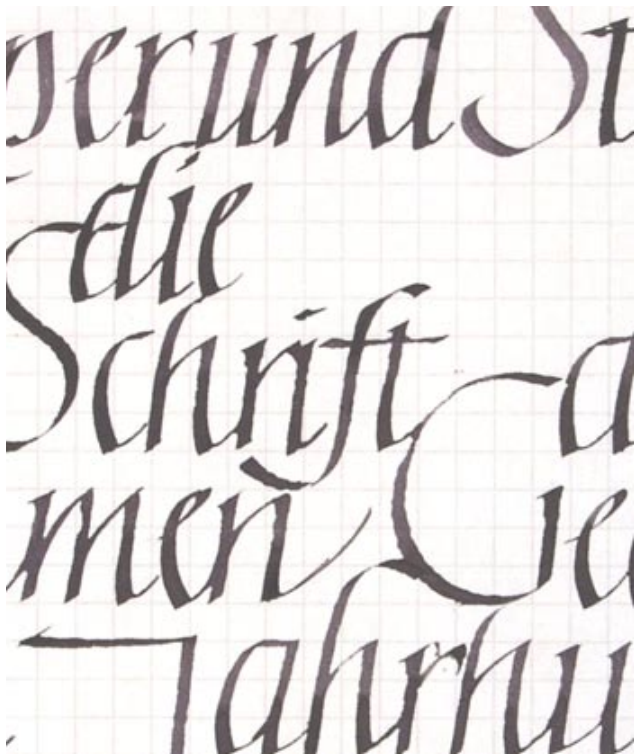 per und St
die
Schrift d
men Ge
Jahrhu